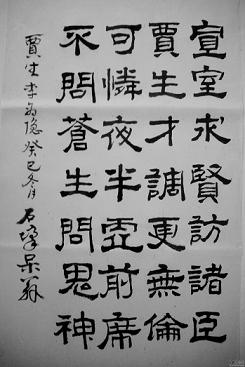 宣室求賢訪諸臣
賈生才調更無倫
可憐夜半虛前席
不問蒼生問鬼神
賈生 李商隐 癸巳冬月